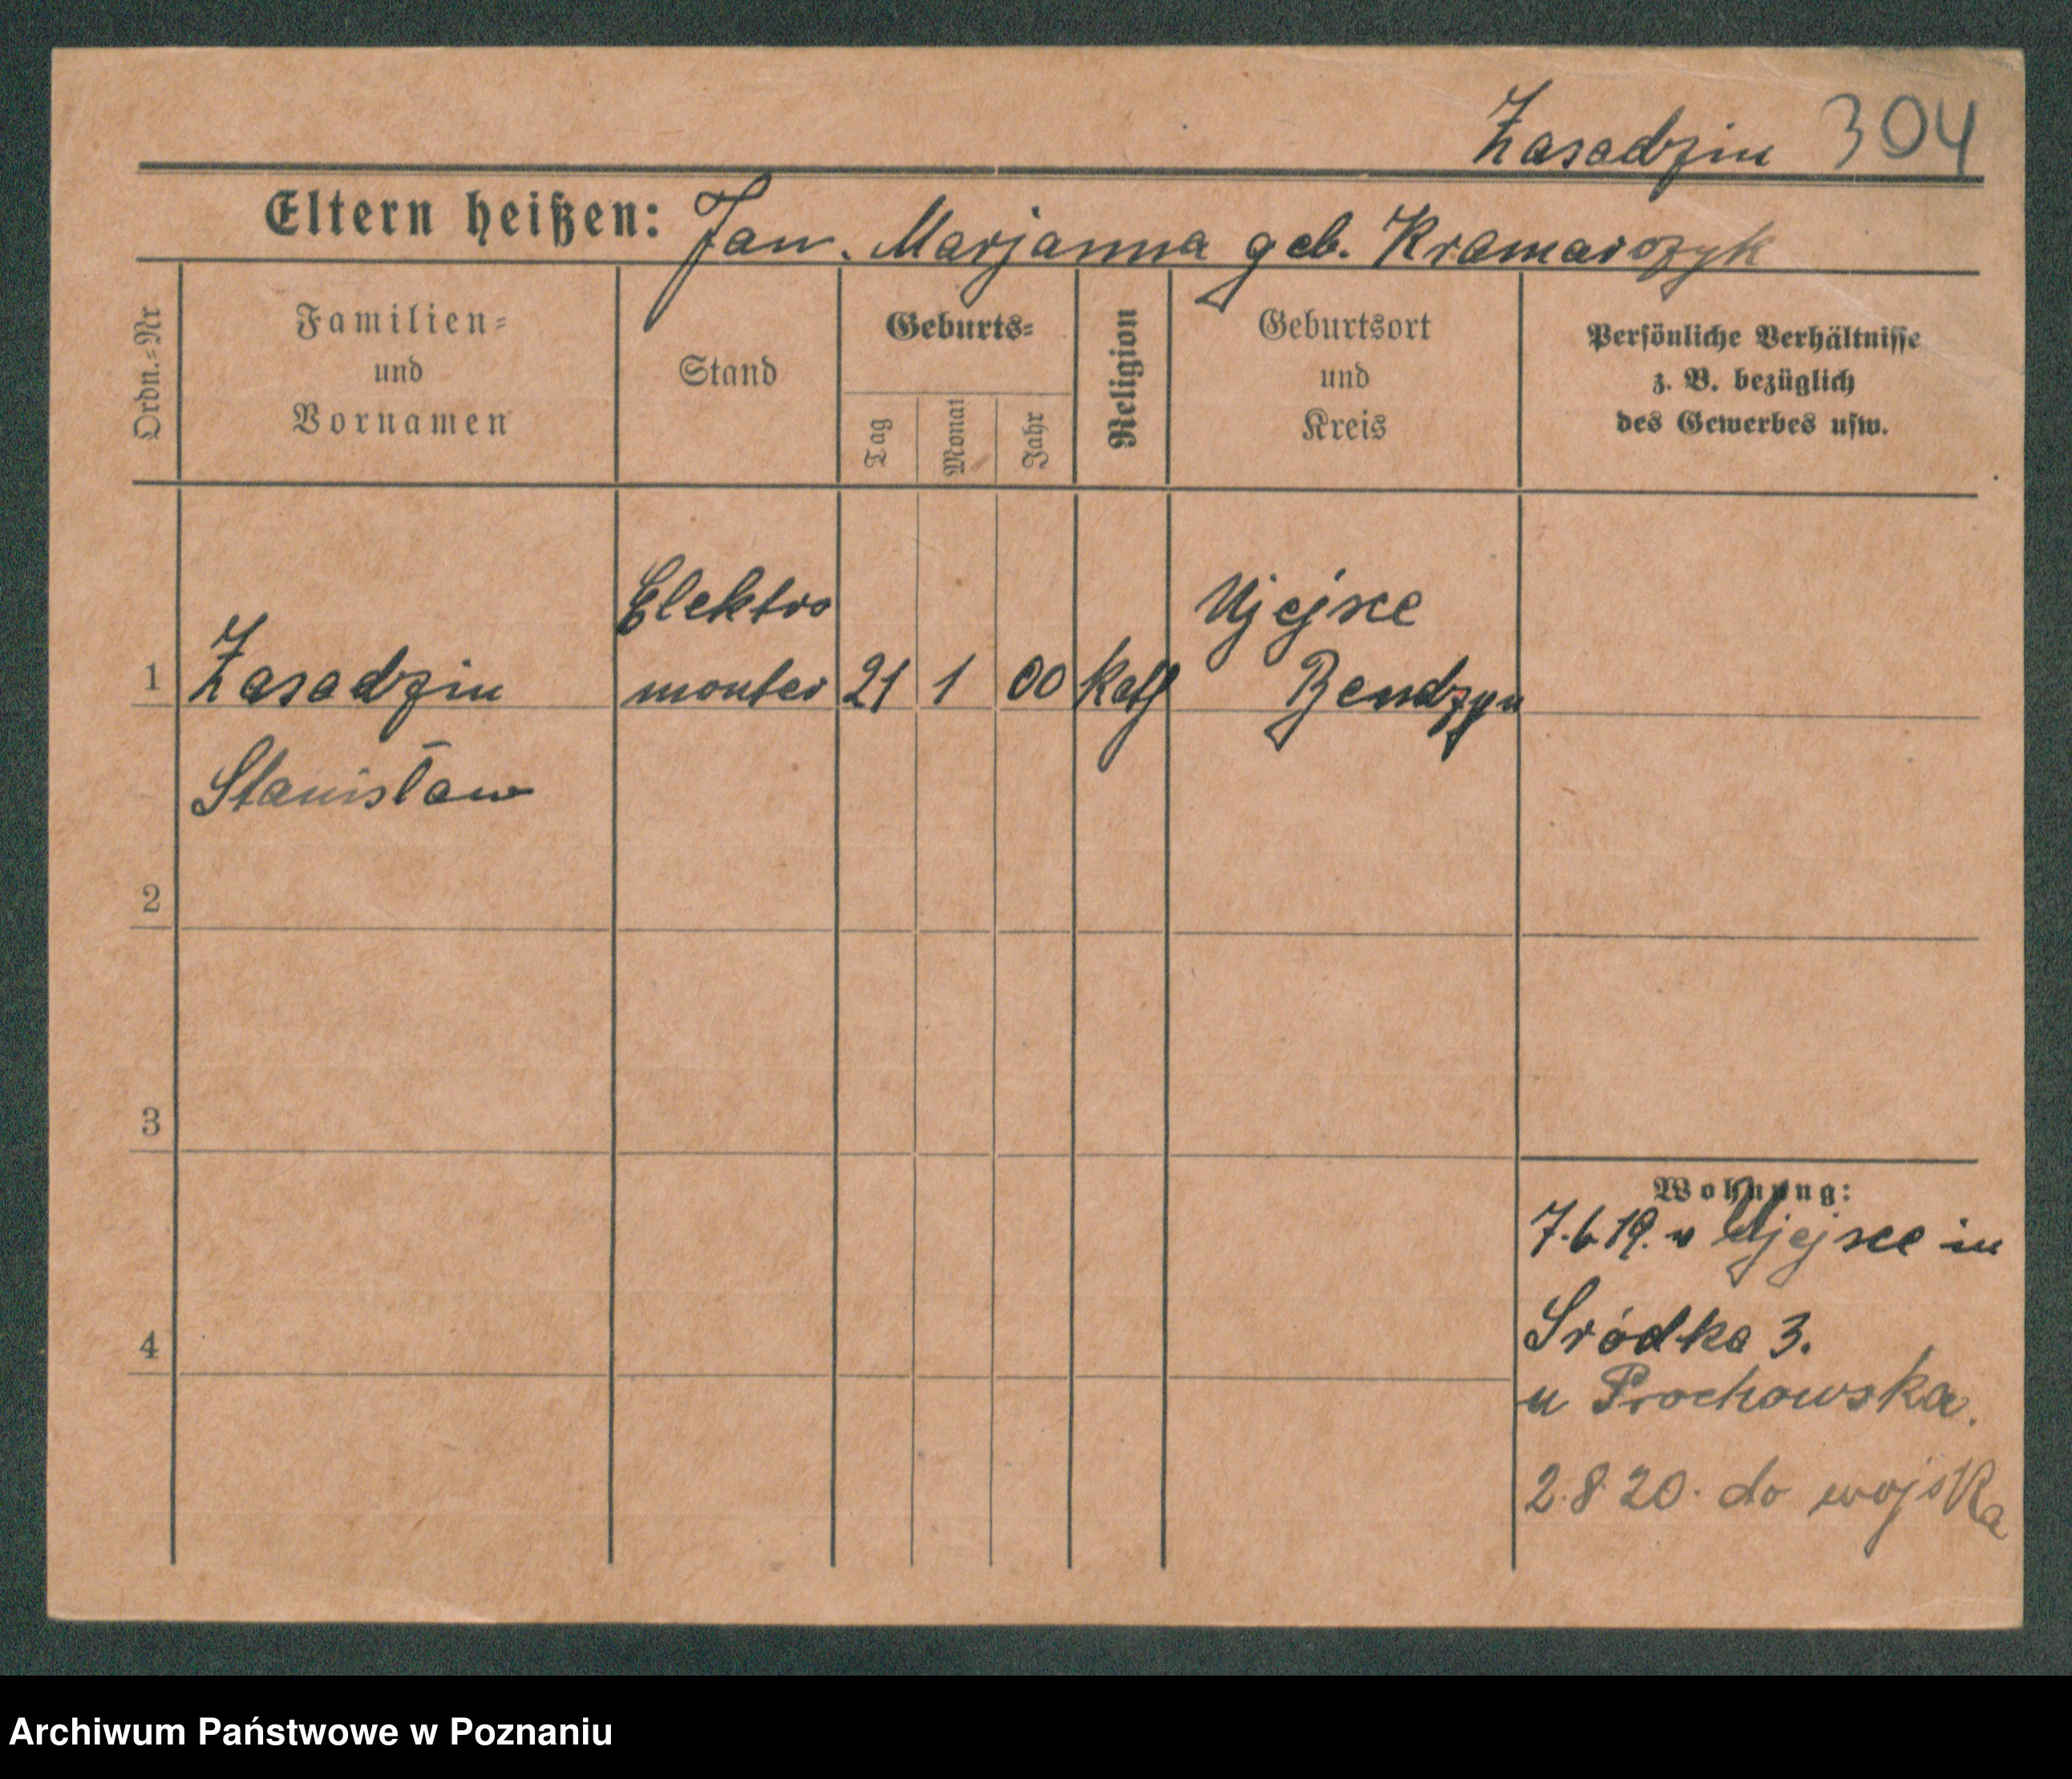 Zasadzin 304
Eltern heißen: Jan. Marjanna geb. Kramarczyk
Ordn.-Nr
Familien-
und
Vornamen
Stand
Geburts-
Tag
Monat
Jahr
Religion
Geburtsort
und
Kreis
Persönliche Verhältnisse
z. B. bezüglich
des Gewerbes usw.
Elektro
Ujejsce
1 Zasadzin monter 21 1 00 kath Bendzyn
Stanisław
2
3
Wohnung:
7.6 19. v Ujejsce in
Sródka 3.
4
u Prochowska.
2.8 20. do wojska
Archiwum Państwowe w Poznaniu